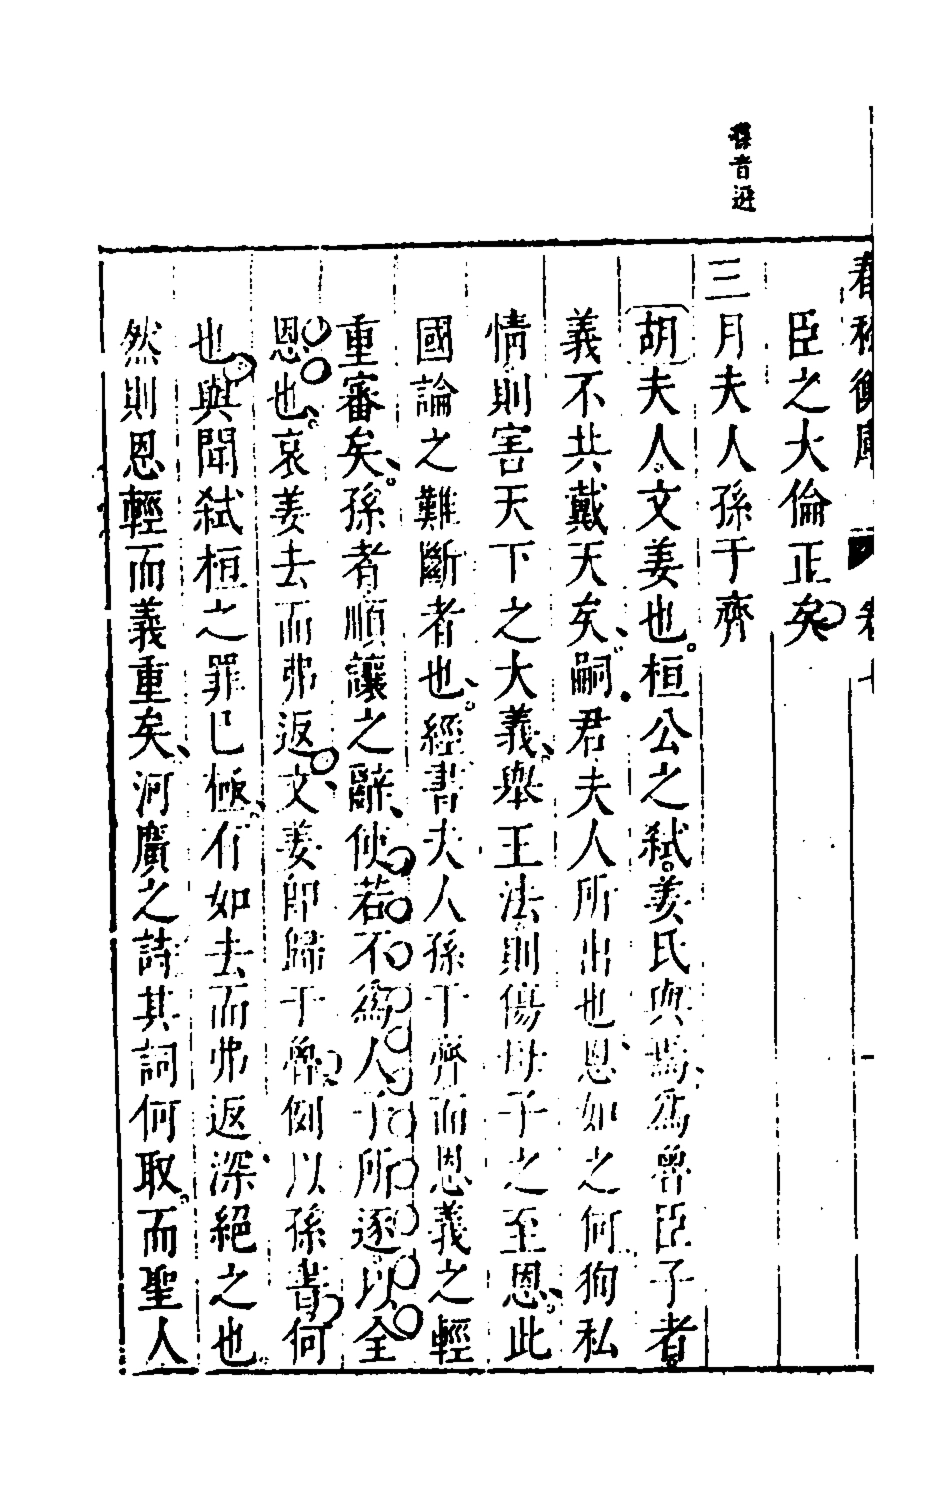 孫音遜
春秋衡庫 卷七
臣之大倫正矣
三月夫人孫于齊
胡夫人文姜也桓公之弒姜氏與焉為魯臣子者
義不共戴天矣嗣君夫人所出也恩如之何狥私
情則害天下之大義舉王法則傷母子之至恩此
國論之難斷者也經書夫人孫于齊而恩義之輕
重審矣孫者順讓之辭使若不為人子所逐以全
恩也哀姜去而弗返文姜卽歸于魯例以孫書何
也與聞弒桓之罪已極有如去而弗返深絕之也
然則恩輕而義重矣河廣之詩其詞何取而聖人